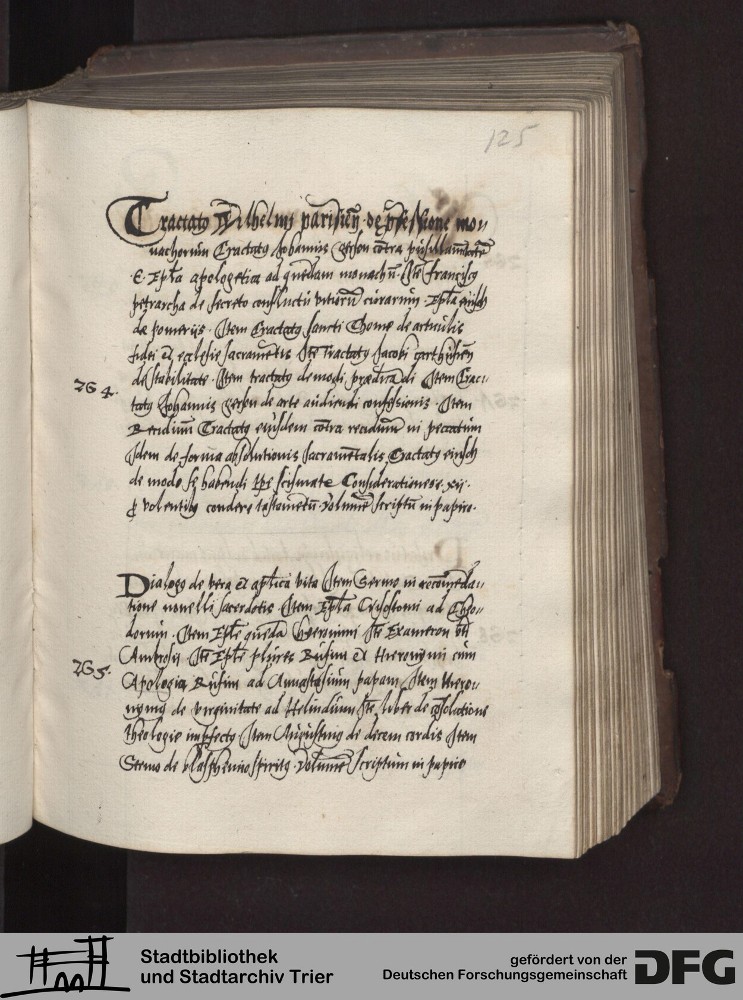 125
Tractatꝰ Wilhelmi parisieñ. de ꝓfessione mo//
nachorum Tractatꝰ Johannis Gerson cõtra pusillanimitatẽ
Ep̃la apologetica ad quendam monachũ. Itẽ Franciscꝰ
petrarcha de secreto conflictu curarum. Ep̃la eiusdẽ
de pomeriis. Item Tractatꝰ sancti Thome de articulis
fidei et ecclesie sacramẽtis Itẽ Tractatꝰ Jacobi carthusieñ
264.
de stabilitate. Item tractatꝰ de modi prædicãdi Item Trac//
tatꝰ Johannis Gerson de arte audiendi confessionis. Item
Tractatꝰ eiusdem cõtra recidiuũ in peccatum
Idem de forma absolutionis sacramẽtalis Tractatꝰ eiusdẽ
de modo se habendi tp̃e scismate Considerationes xii.
ꝓ volentibꝰ condere testamẽtũ. Volumẽ scriptũ in papiro.
Dialogꝰ de vera et ap̃lica vita Item Sermo in recõmẽda//
tione nouelli sacerdotis Item Ep̃la Crisostomi ad Theo//
dorum. Item Ep̃le quedã Hieronimi Itẽ Exameron bti
265.
Ambrosii Itẽ Ep̃le plures Rufini et Hieronymi cum
Apologia Rufini ad Annastasium papam Item Hiero//
nymꝰ de virginitate ad Itẽ liber de cõsolatione
theologie imꝑfectꝰ Item Augustinꝰ de decem cordis Item
Sermo de blasphemio spiritꝰ. Volumẽ scriptum in papiro
Stadtbibliothek
und Stadtarchiv Trier
gefördert von der
Deutschen Forschungsgemeinschaft
DFG